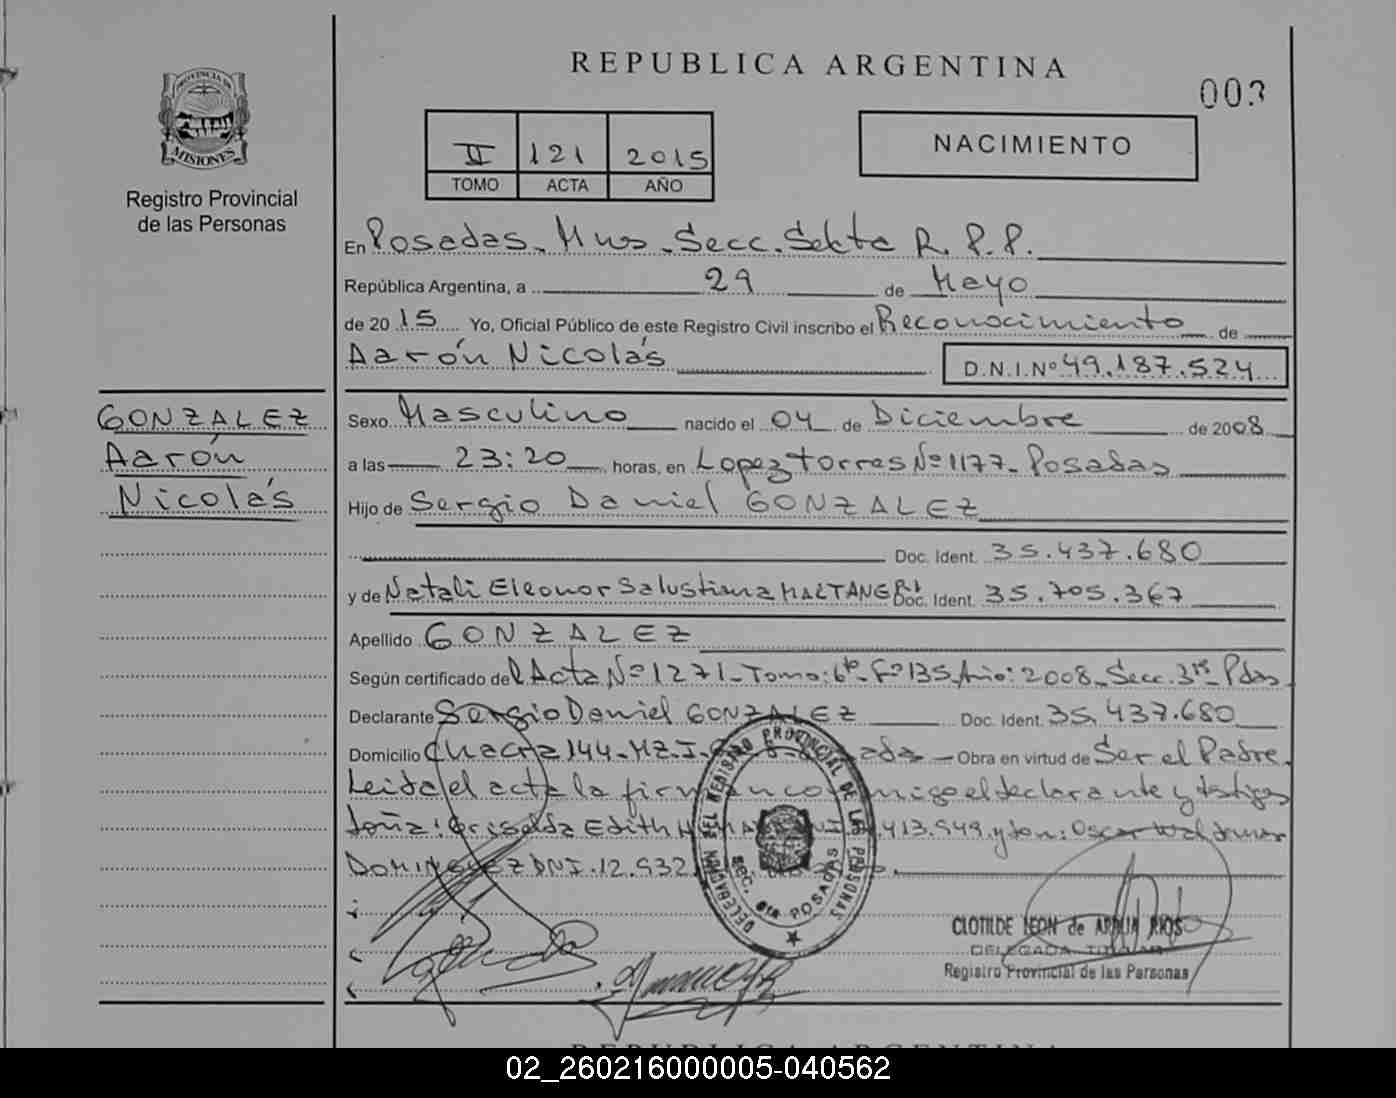 REPUBLICA ARGENTINA
003
PROVINCIA DE
MISIONES
Registro Provincial
de las Personas
II 121 2015
TOMO ACTA AÑO
NACIMIENTO
En Posadas - Mnes - Secc. Sexta R. P. P.
República Argentina, a 29 de Mayo
de 2015 Yo, Oficial Público de este Registro Civil inscribo el Reconocimiento de
Aarón Nicolás D.N.I.Nº 49.187.524
GONZALEZ
Aarón
Nicolás
Sexo Masculino nacido el 04 de Diciembre de 2008
a las 23:20 horas, en Lopez Torres Nº 1177 - Posadas
Hijo de Sergio Daniel GONZALEZ
Doc. Ident. 35.437.680
y de Natali Eleonor Salustiana Doc. Ident. 35.705.367
Apellido GONZALEZ
Según certificado del Acta Nº 1271 - Tomo: 6to - Fº 135 Año: 2008 - Secc. 3ra - Pdas
Declarante Sergio Daniel GONZALEZ Doc. Ident. 35.437.680
Domicilio Chacra 144 - MZ. I - Obra en virtud de Ser el Padre.
Leida el acta la firman conmigo el declarante y testigos
doña: Griselda Edith .413.949. y don: Oscar
DOMINGUEZ DNI. 12.932.
DELEGACION DEL REGISTRO PROVINCIAL DE LAS PERSONAS
SEC. 6ta POSADAS
CLOTILDE LEON de RIOS
DELEGADA TITULAR
Registro Provincial de las Personas
REPUBLICA ARGENTINA
02_260216000005-040562